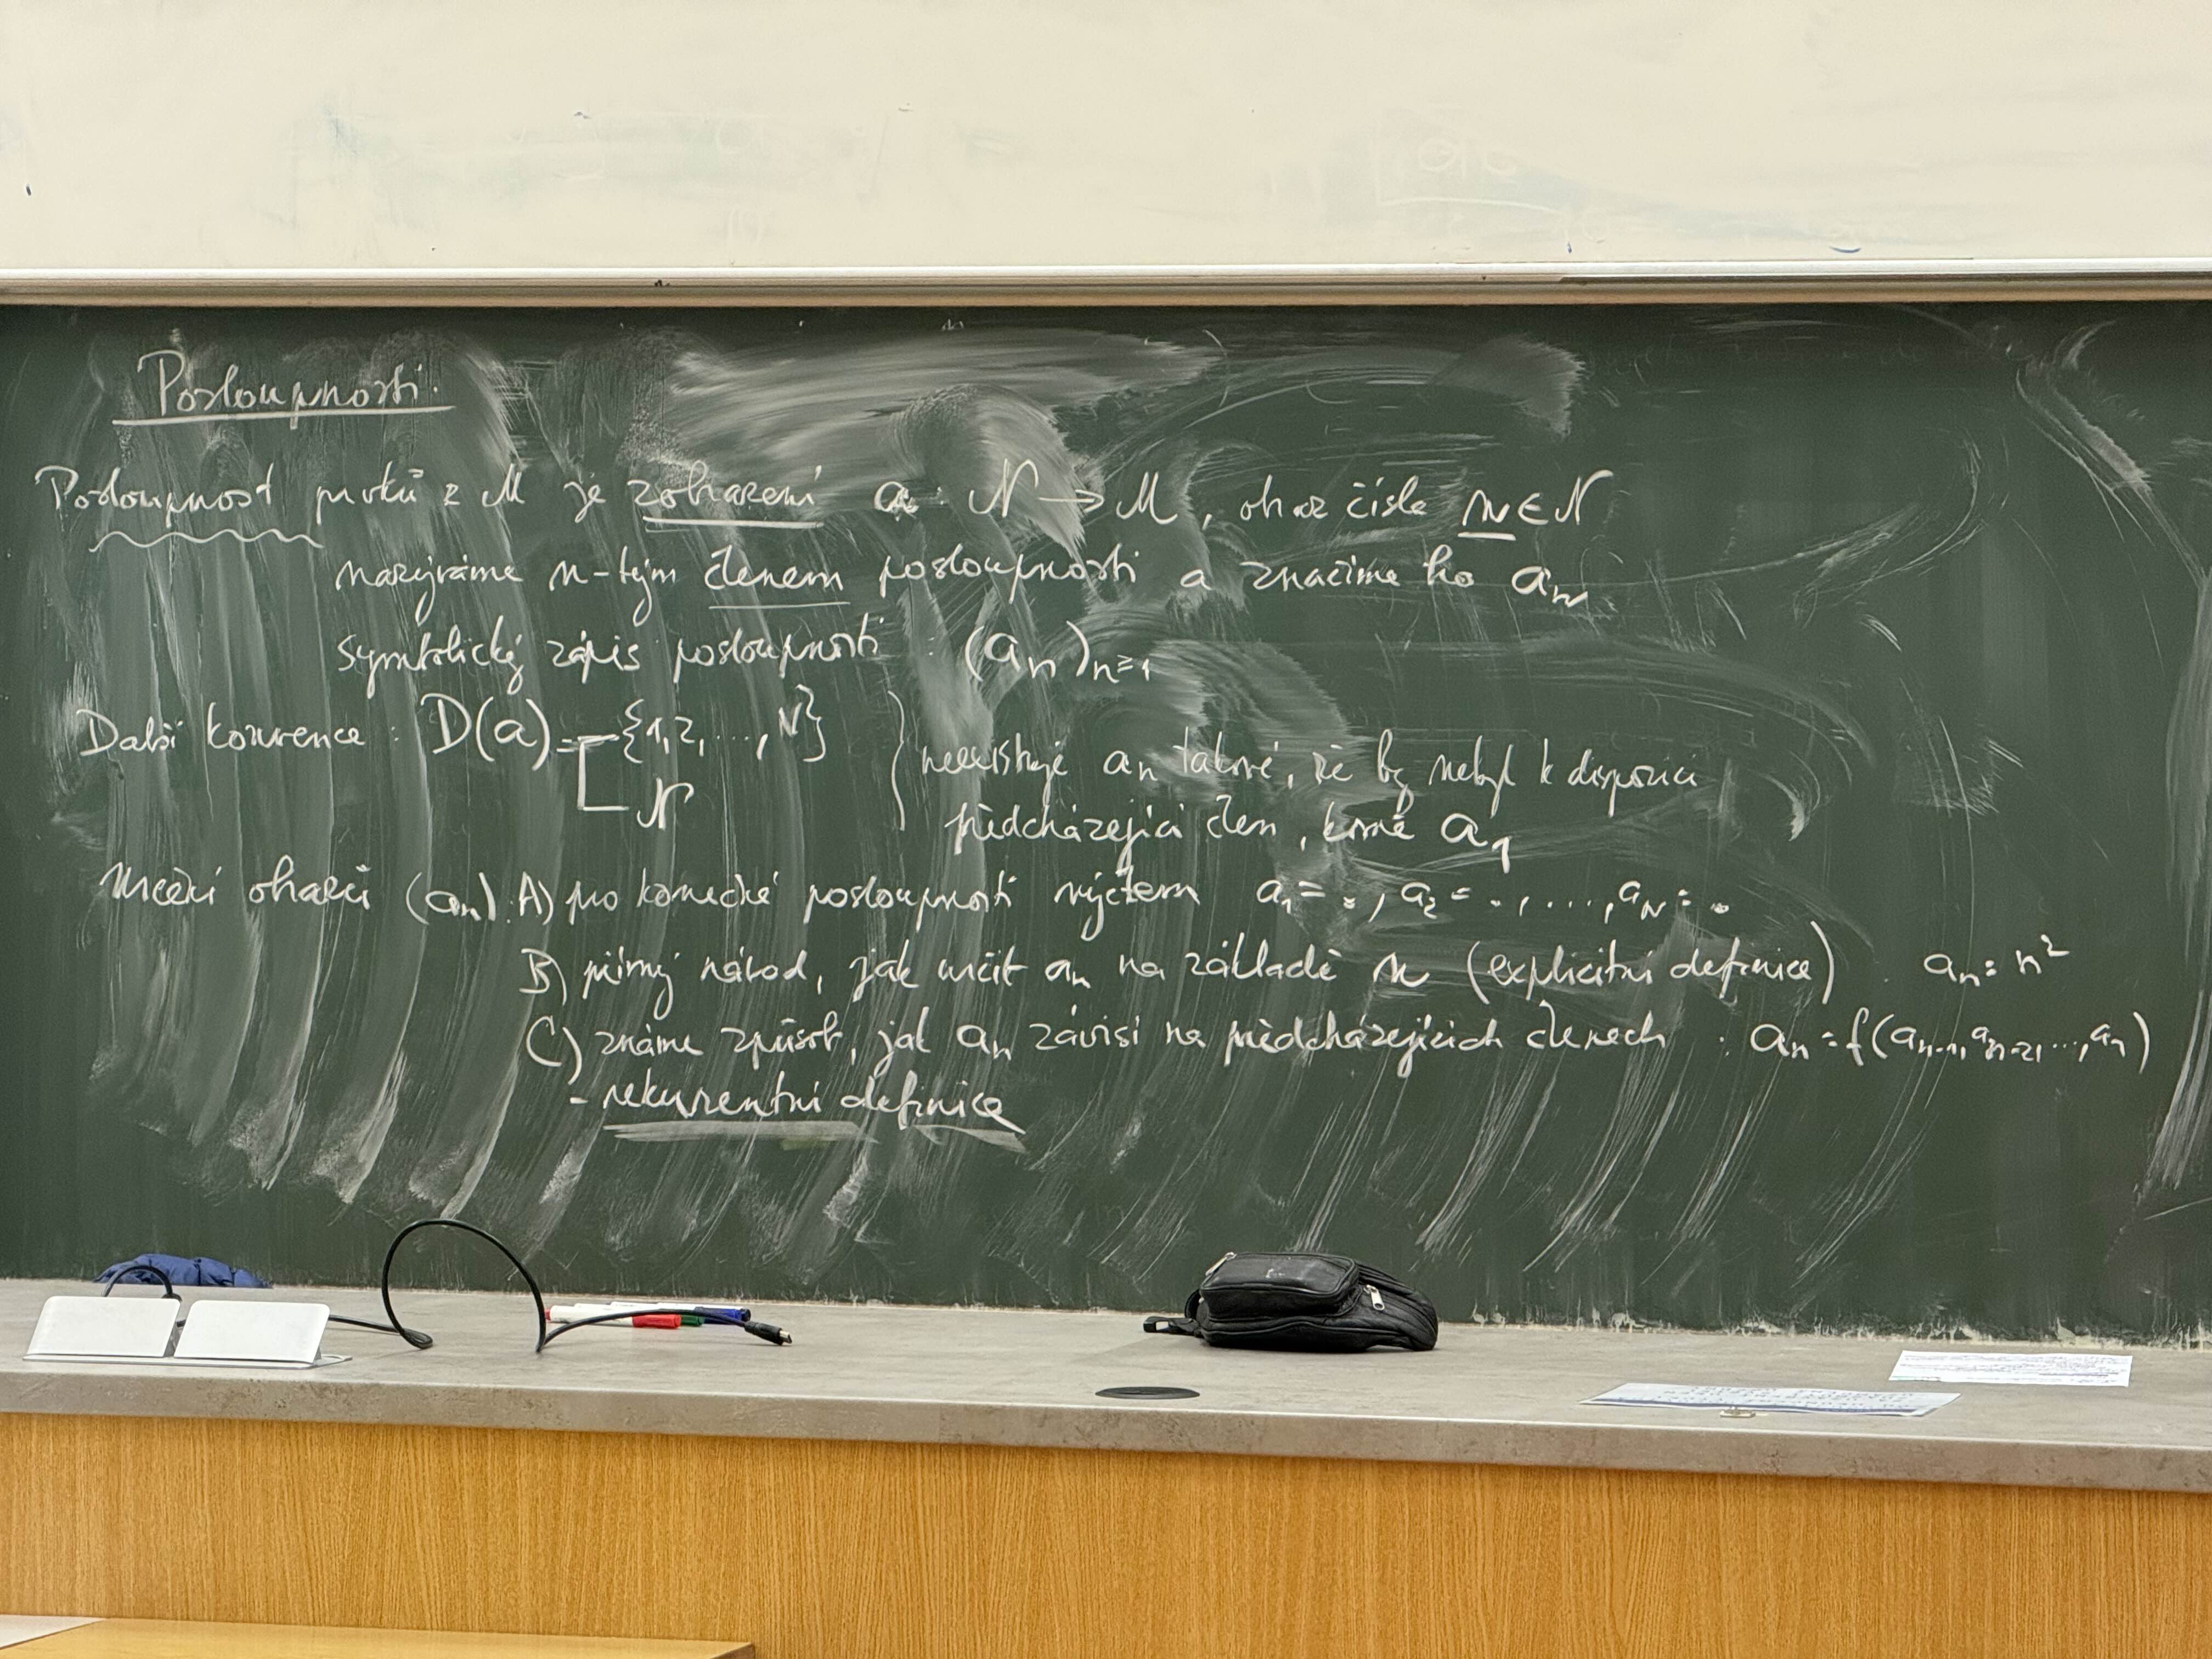 Posloupnosti.
Posloupnost prvků z M je zobrazení a: N → M, obraz čísla n ∈ N
nazýváme n-tým členem posloupnosti a značíme ho aₙ
symbolický zápis posloupnosti : (aₙ)ₙ≥₁
Další konvence : D(a) = {1,2,...,N}
N
neexistuje aₙ takové, že by nebyl k dispozici
předcházející člen, kromě a₁
Určení obrazů (aₙ): A) pro konečné posloupnosti výčtem a₁ = ., a₂ = ., ..., a_N = .
B) přímý návod, jak určit aₙ na základě n (explicitní definice) . aₙ = n²
C) známe způsob, jak aₙ závisí na předcházejících členech : aₙ = f(aₙ₋₁, aₙ₋₂, ..., a₁)
- rekurentní definice